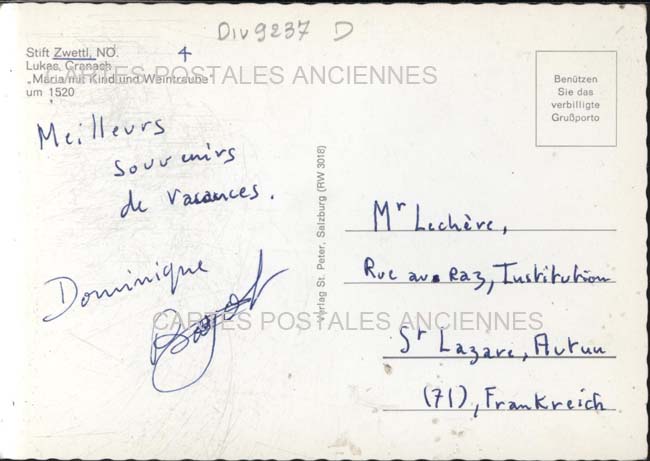 Div9237 D
Stift Zwettl, NÖ. 4
Lukas Cranach
„Maria mit Kind und Weintraube"
um 1520
CARTES POSTALES ANCIENNES
Benützen
Sie das
verbilligte
Grußporto
Meilleurs
souvenirs
de vacances.
Dominique
Verlag St. Peter, Salzburg (RW 3018)
Mr Lechère,
Rue au Raz, Institution
St Lazare, Autun
(71), Frankreich
CARTES POSTALES ANCIENNES